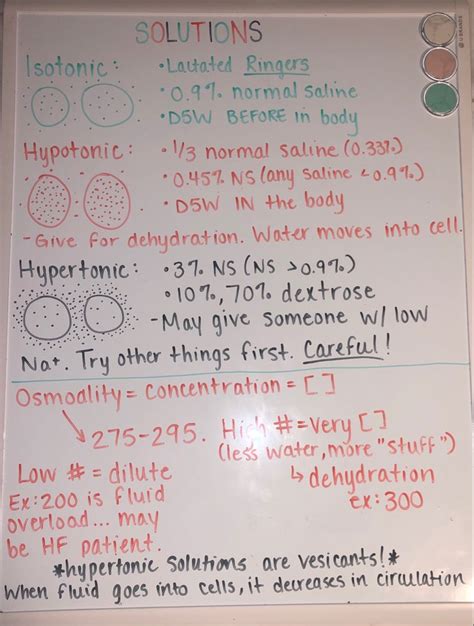 SOLUTIONS
Isotonic: • Lactated Ringers
• 0.9% normal saline
• D5W BEFORE in body
Hypotonic: • 1/3 normal saline (0.33%)
• 0.45% NS (any saline < 0.9%)
• D5W IN the body
- Give for dehydration. Water moves into cell.
Hypertonic: • 3% NS (NS > 0.9%)
• 10%, 70% dextrose
- May give someone w/ low
Na+. Try other things first. Careful!
Osmoality = Concentration = [ ]
↘ 275-295. High # = very [ ]
(less water, more "stuff")
Low # = dilute ↳ dehydration
Ex: 200 is fluid ex: 300
overload... may
be HF patient.
*hypertonic solutions are vesicants!*
When fluid goes into cells, it decreases in circulation